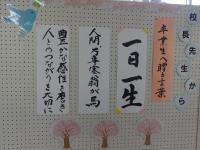 校長先生から
卒業生へ贈る言葉
一日一生
人間万事塞翁が馬
豊かな感性を磨き
人とのつながりを大切に